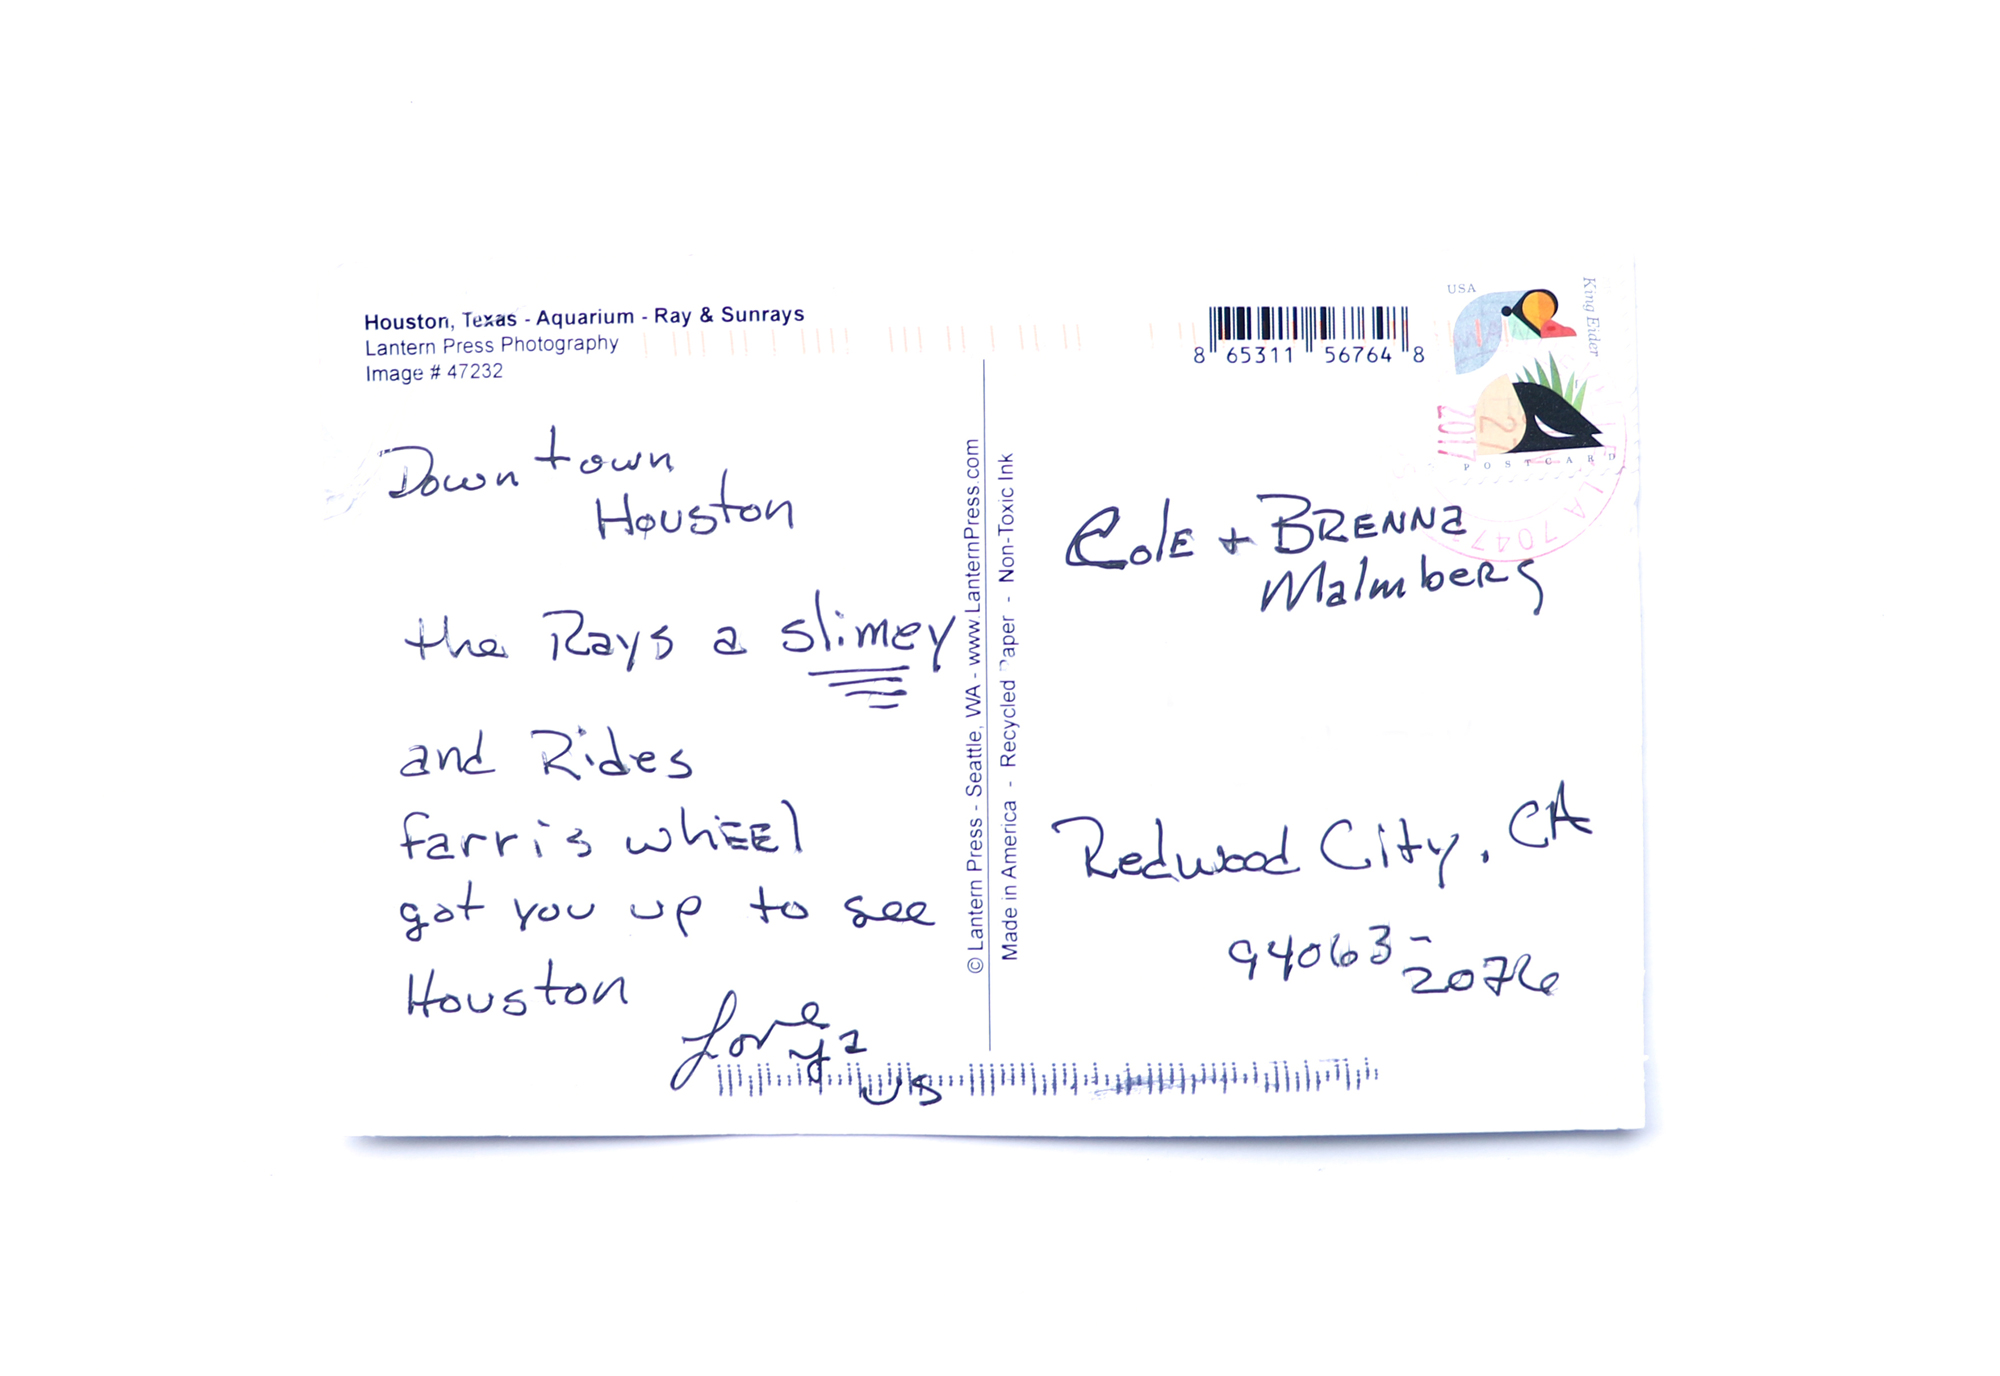 Houston, Texas - Aquarium - Ray & Sunrays
Lantern Press Photography
Image # 47232
Down town
Houston
the Rays a slimey
and Rides
farris whEEl
got you up to see
Houston
Love
ya
us
© Lantern Press - Seattle, WA - www.LanternPress.com
Made in America - Recycled Paper - Non-Toxic Ink
8 65311 56764 8
USA
King Eider
POSTCARD
27
2017
LA 7047
ColE + BRENNa
MalmbeRg
Redwood City, CA
94063-
2076